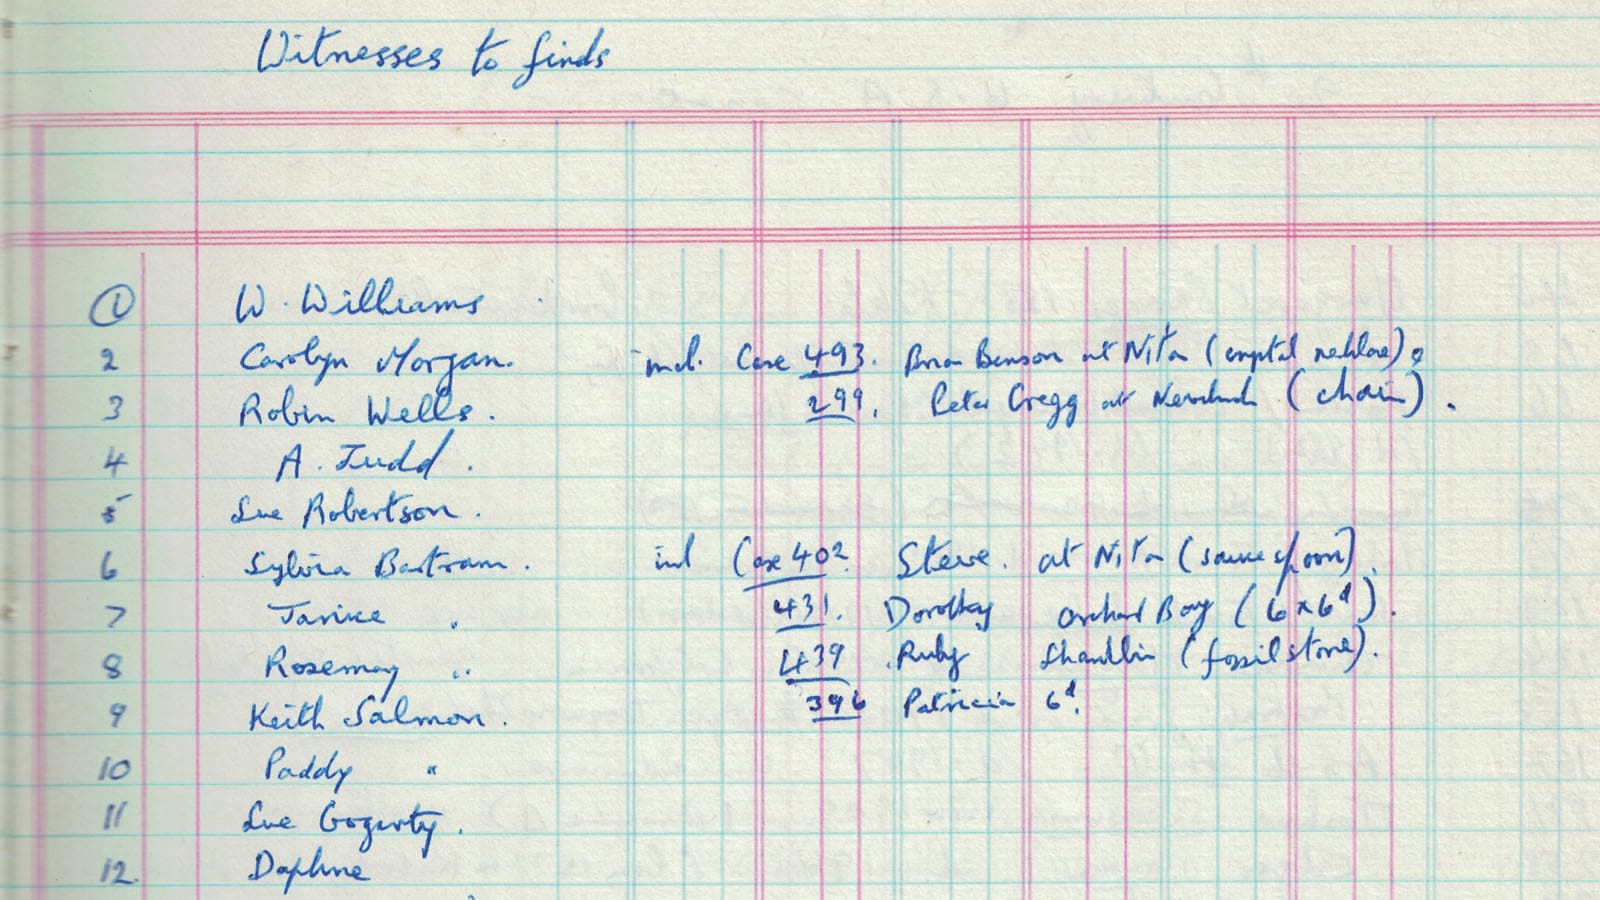 Witnesses to finds
1 W. Williams
2 Carolyn Morgan. incl. Case 493. Brian Benson at Nita (crystal necklace).
3 Robin Wells. 299. Peter Gregg at (chain).
4 A. Judd.
5 Sue Robertson.
6 Sylvia Bartram. incl Case 402. Steve. at Nita (sauce spoon).
7 Janice " 431. Dorothy Orchard Bay (6 x 6d).
8 Rosemary " 439 Ruby (fossil stone).
9 Keith Salmon. 396 Patricia 6d.
10 Paddy "
11 Sue Gogerty.
12. Daphne